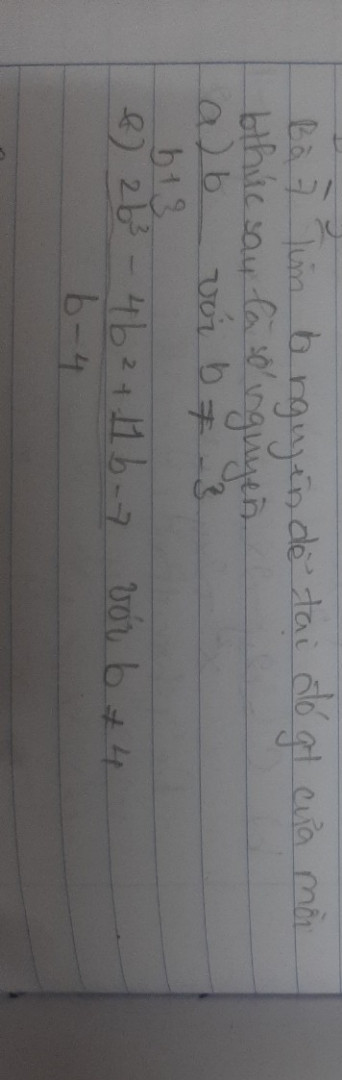 Bài 7 Tìm b nguyên để tại đó gt của mỗi
bthức sau là số nguyên
a) b/b+3 với b ≠ -3
e) 2b³ - 4b² + 11b - 7/b - 4 với b ≠ 4